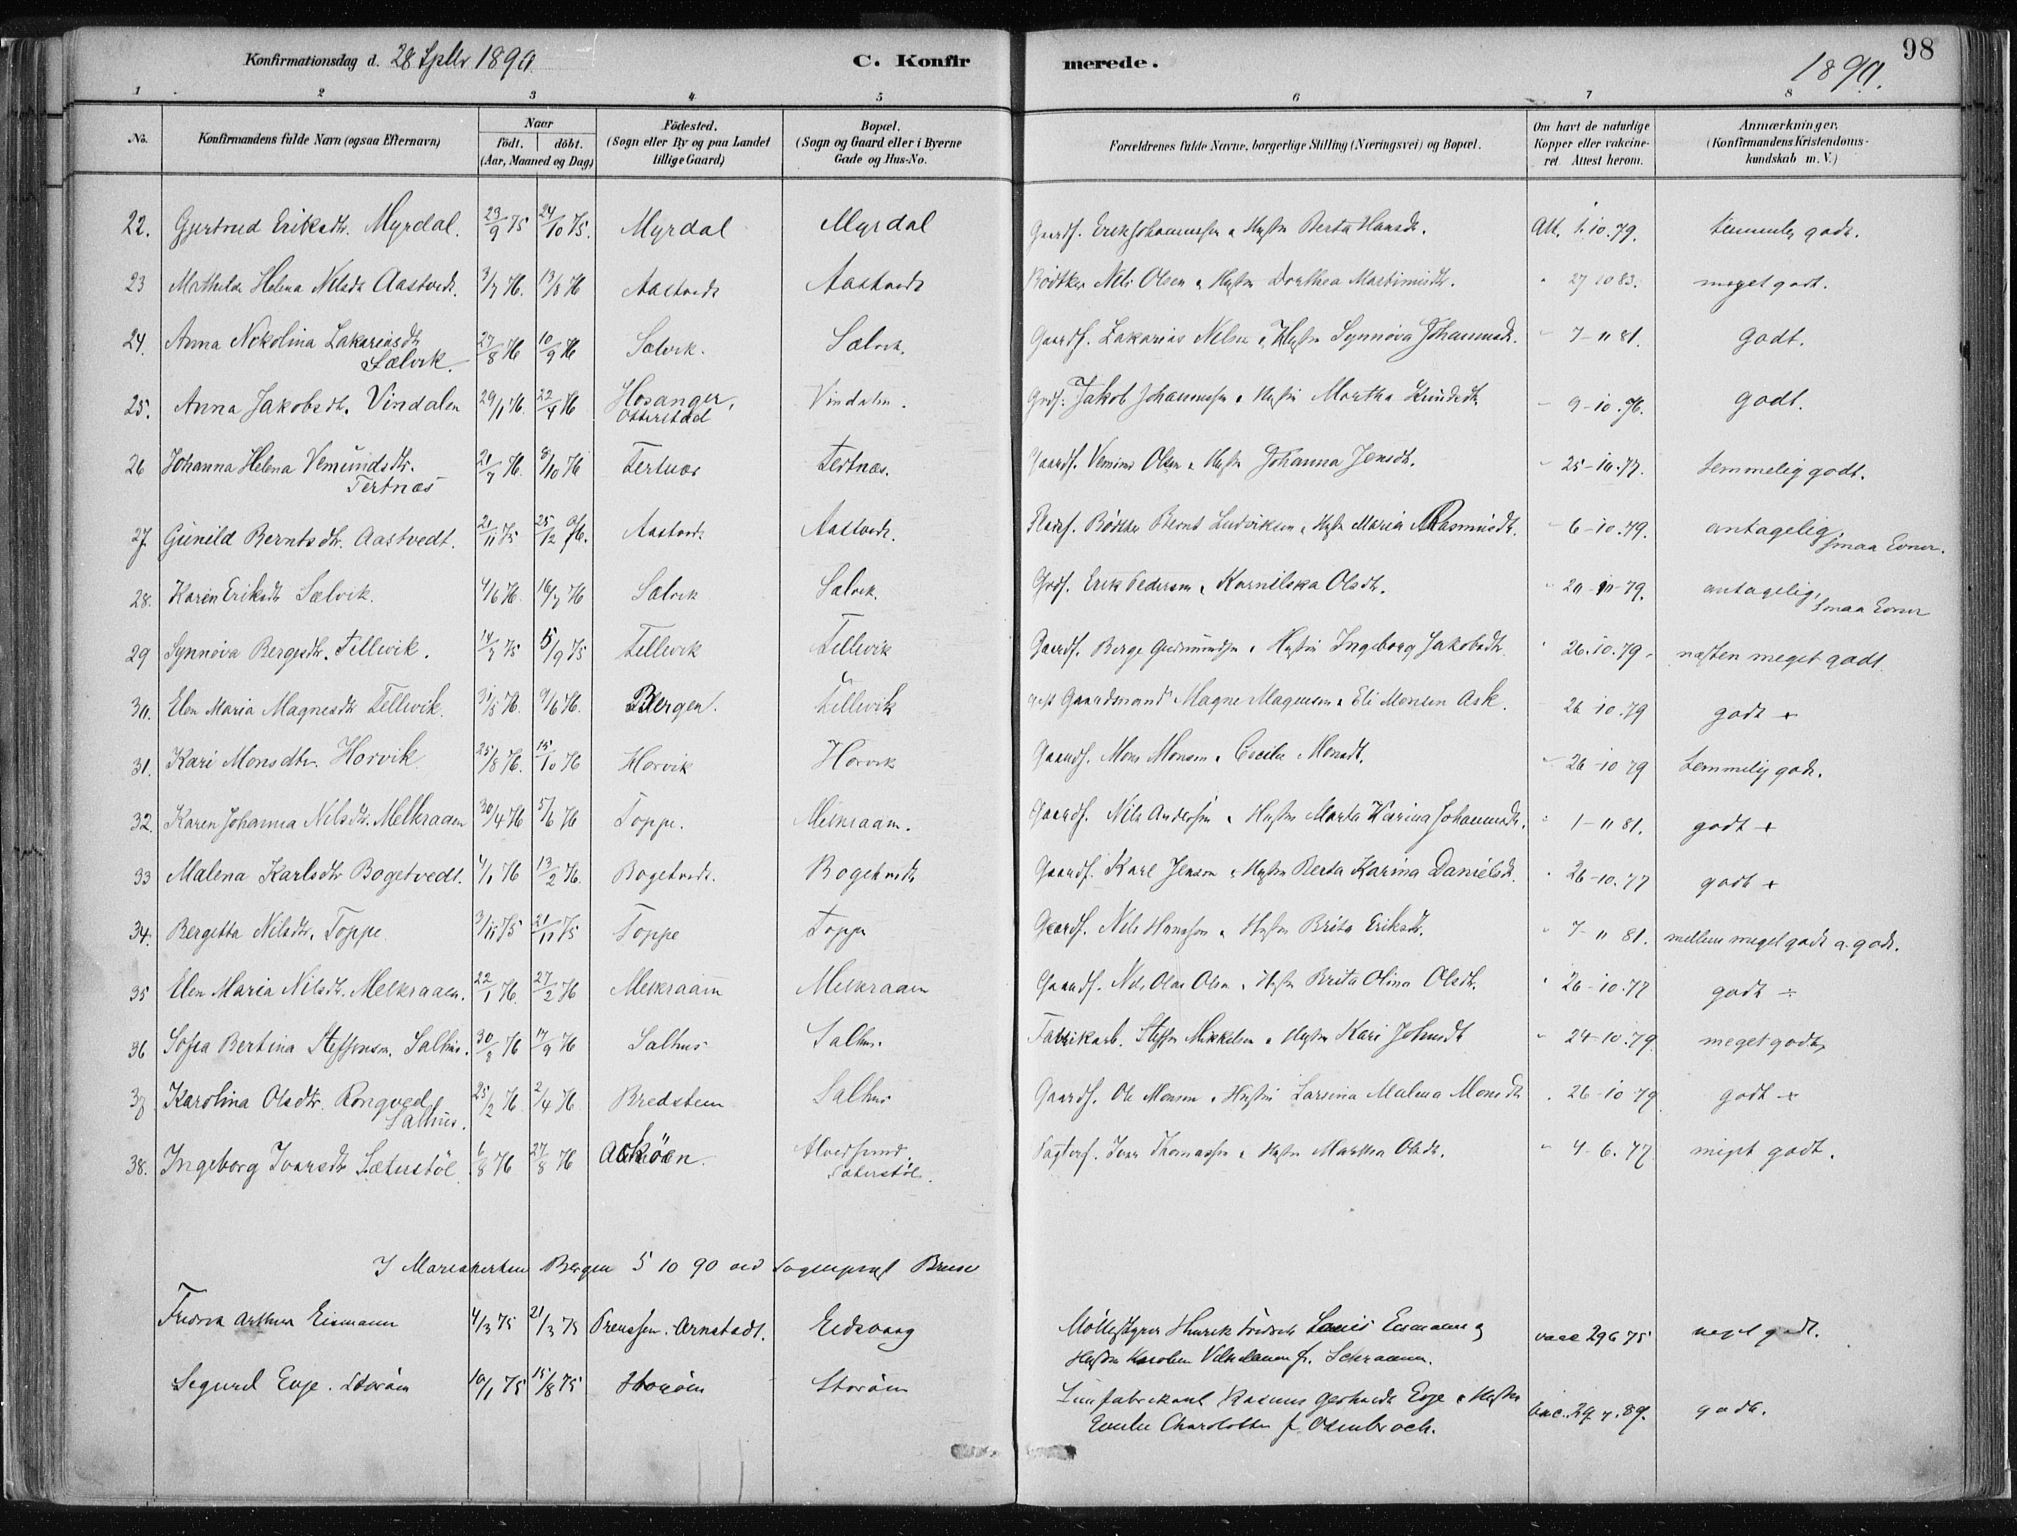 Konfirmationsdag d. 28 Septbr 1890.
C. Konfirmerede.
1890.
98
1 2 3 4 5 6 7 8
No.
Konfirmandens fulde Navn (ogsaa Efternavn)
Naar
födt. döbt.
(Aar, Maaned og Dag)
Födested.
(Sogn eller By og paa Landet
tillige Gaard)
Bopæl.
(Sogn og Gaard eller i Byerne
Gade og Hus-No.
Forældrenes fulde Navne, borgerlige Stilling (Næringsvei) og Bopæl.
Om havt de naturlige
Kopper eller vakcine-
ret. Attest herom.
Anmærkninger.
(Konfirmandens Kristendoms-
kundskab m. V.)
22. Gjertrud Eriksdtr. Myrdal. 23/9 75 24/10 75. Myrdal Myrdal Gaardf. Erik Johannessen & Hustru Berta Hansdtr. Att. 1.10.79. temmelig godt.
23 Mathilde Helena Nilsdtr Aastvedt. 3/7 76. 13/8 76 Aastvedt Aastvedt Bödtker Nils Olsen & Hustru Dorthea Martinusdtr. " 27 10 83. meget godt.
24. Anna Nikolina Zakariasdtr
Sælvik. 27/8 76 10/9 76 Sælvik. Sælvik. Gaardf. Zakarias Nilsen & Hustru Synnöva Johannesdtr. " 7-11 81. godt.
25. Anna Jakobsdtr. Vindalen 29/1 76. 22/4 76 Hosanger,
Otterstad Vindalen. Grdf. Jakob Johannessen & Hustru Martha Knudsdtr. " 9-10.76. godt.
26 Johanna Helena Vemundsdtr.
Tertnæs 21/9 76. 8/10 76 Tertnæs Tertnæs. Gaardf. Vemund Olsen & Hustru Johanna Jensdtr. " 25-10.77. temmelig godt.
27. Gunild Berntsdtr. Aastvedt. 21/11 75 25/12 76. Aastvedt Aastvedt. Bödtker Bernt Ludviksen & Hustru Maria Rasmusdtr. " 6-10.79. antagelig.
smaa Evner.
28. Karen Eriksdtr Sælvik. 4/6 76. 16/7 76 Sælvik Sælvik. Grdf. Erik Pedersen & Kornilska Olsdtr. " 20-10-79. antagelig,
smaa Evner
29 Synnöva Bergesdtr. Tellevik. 14/7 75 5/9 75 Tellevik Tellevik Gaardf. Berge Gudmundsen & Hustru Ingeborg Jakobsdtr " 26.10.79. næsten meget godt.
30. Elen Maria Magnesdtr Tellevik. 31/5 76. 9/6 76. Bergen. Tellevik Gaardmand Magne Magnesen & Eli Monsen Ask. 26-10-79 godt +
31. Kari Monsdtr. Horvik 25/8 76. 15/10 76 Horvik Horvik Gaardf. Mons Monsen & Cecilia Monsdtr. " 26-10 79 temmelig godt.
32. Karen Johanna Nilsdtr. Melkraaen 30/4 76 5/6 76 Toppe. Melkraaen. Gaardf. Nils Andersen & Hustru Marta Karina Johannesdtr. " 1-11 81. godt +
33 Malena Karlsdtr Bogetvedt. 4/1 76 13/2 76. Bogetvedt. Bogetvedt Gaardf. Karl Jensen & Hustru Berta Karina Danielsdtr. " 26-10.77 godt +
34. Bergetta Nilsdtr. Toppe 3/11 75 21/11 75 Toppe Toppe Gaardf. Nils Hansen & Hustru Brita Eriksdtr. " 7-11 81. mellem meget godt o. godt.
35 Elen Maria Nilsdtr. Melkraaen. 22/1 76. 27/2 76 Melkraaen Melkraaen Gaardf. Nils Olai Olsen & Hustru Brita Olina Olsdtr. " 26-10.77 godt ÷
36 Sofia Bertina Steffensen. Salhus. 30/8 76 17/9 76 Salhus Salhus. Fabrikarb. Steffen Mikkelsen & Hustru Kari Johnsdtr " 24-10.79. meget godt,
37 Karolina Olsdtr. Rongved
Salhus. 25/2 76. 2/4 76 Bredsten Salhus Gaardf. Ole Monsen & Hustru Larsina Malena Monsdtr. 26-10 79. godt +
38. Ingeborg Ivarsdtr Sæterstöl 6/8 76 27/8 76 Asköen. Alversund.
Sæterstöl. Iver Thomassen & Hustru Martha Olsdtr. " 4-6.77 meget godt.
I Mariakirken Bergen 5 10 90 ved Sogneprest Bruun
Fredrik Arthur Eismann 4/3 75 21/3 75 Preussen. Arnstadt. Eidsvaag Möllestyrer Henrik Fredrik Louis Eismann og
Hustru Karoline Vilhelmine f. Schramm. vacc 29 6 75 meget godt.
Sigurd Evje. Storöen 10/1 75 15/8 75 Storöen Storöen Limfabrikant Rasmus Gerhardt Evje & Hustru
Emilie Charlotte f. Osenbroch. Vac. 29.7.89. godt.